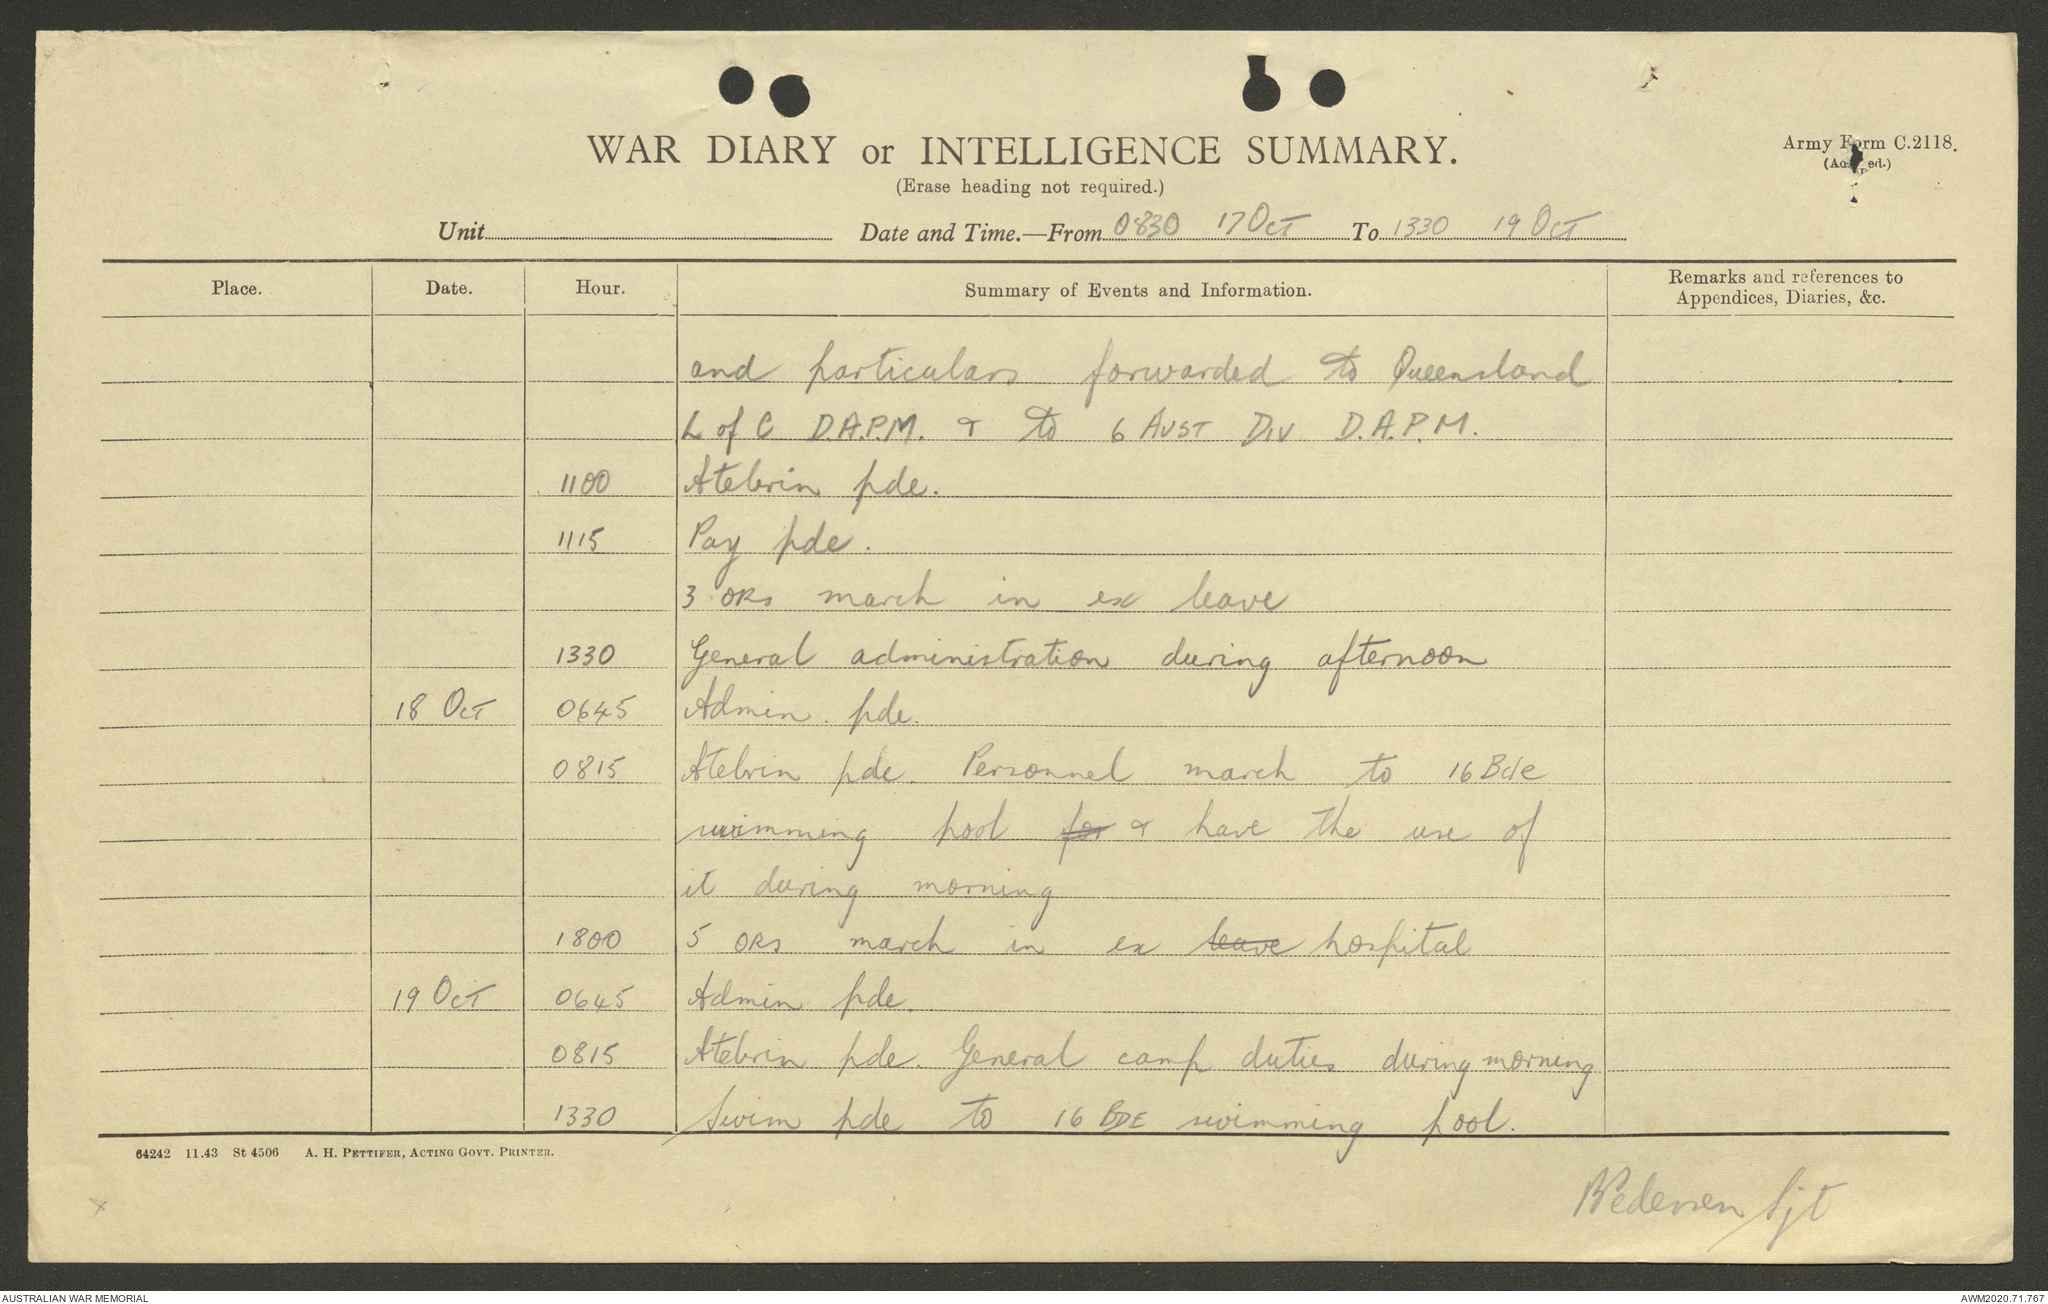 WAR DIARY or INTELLIGENCE SUMMARY.
Army Form C.2118.
(Erase heading not required.)
Unit Date and Time.—From 0830 17 Oct To 1330 19 Oct
Place. Date. Hour. Summary of Events and Information. Remarks and references to
Appendices, Diaries, &c.
and particulars forwarded to Queensland
L of C D.A.P.M. & to 6 AUST DIV D.A.P.M.
1100 Atebrin pde.
1115 Pay pde.
3 ORs march in ex leave
1330 General administration during afternoon
18 Oct 0645 Admin. pde.
0815 Atebrin pde. Personnel march to 16 Bde
swimming pool for & have the use of
it during morning
1800 5 ORs march in ex leave hospital
19 Oct 0645 Admin pde.
0815 Atebrin pde. General camp duties during morning
1330 Swim pde to 16 BDE swimming pool.
64242 11.43 St 4506 A. H. PETTIFER, ACTING GOVT. PRINTER.
Sjt
AUSTRALIAN WAR MEMORIAL AWM2020.71.767